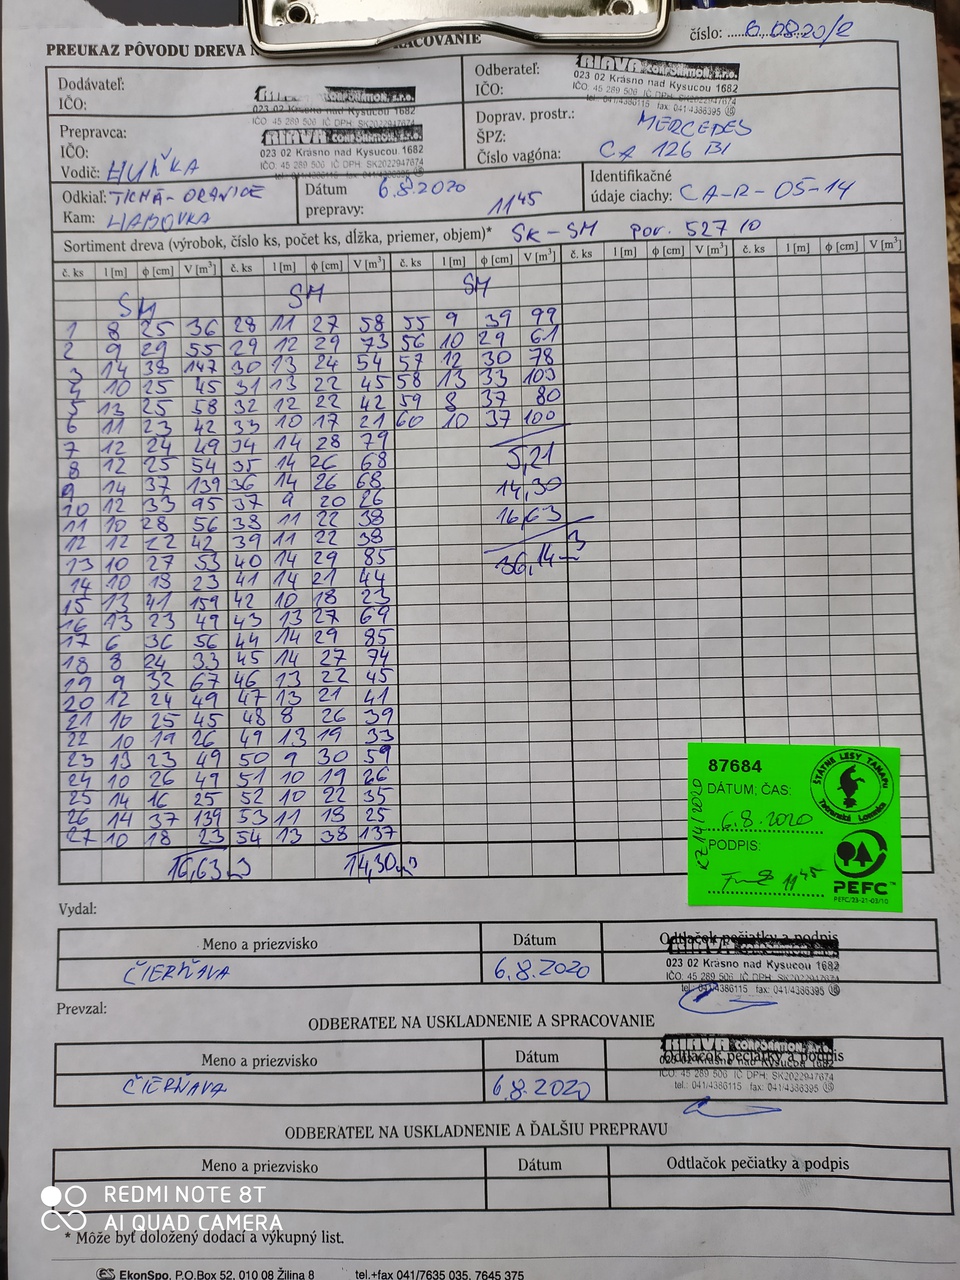 PREUKAZ PÔVODU DREVA
RACOVANIE
číslo: 6.08.20/2
Dodávateľ:
IČO:
CORPORATION, s.r.o.
023 02 Krásno nad Kysucou 1682
IČO: 45 289 506 IČ DPH: SK2022947674
Odberateľ:
IČO:
RIAVA CORPORATION, s.r.o.
023 02 Krásno nad Kysucou 1682
IČO: 45 289 506 IČ DPH: SK2022947674
tel.: 041/4386115 fax: 041/4386395
Prepravca:
IČO:
Vodič: HUŇKA
RIAVA CORPORATION, s.r.o.
023 02 Krásno nad Kysucou 1682
IČO: 45 289 506 IČ DPH: SK2022947674
Doprav. prostr.: MERCEDES
ŠPZ: CA 126 BI
Číslo vagóna:
Odkiaľ: TICHÁ-ORAVICE
Kam: HABOVKA
Dátum
prepravy: 6.8.2020
11 45
Identifikačné
údaje ciachy: CA-R-05-14
Sortiment dreva (výrobok, číslo ks, počet ks, dĺžka, priemer, objem)* SK-SM Por. 527 10
č. ks l [m] ϕ [cm] V [m³] č. ks l [m] ϕ [cm] V [m³] č. ks l [m] ϕ [cm] V [m³] č. ks l [m] ϕ [cm] V [m³] č. ks l [m] ϕ [cm] V [m³]
SM SM SM
1 8 25 36 28 11 27 58 55 9 39 99
2 9 29 55 29 12 29 73 56 10 29 61
3 14 38 147 30 13 24 54 57 12 30 78
4 10 25 45 31 13 22 45 58 13 33 103
5 13 25 58 32 12 22 42 59 8 37 80
6 11 23 42 33 10 17 21 60 10 37 100
7 12 24 49 34 14 28 79
8 12 25 54 35 14 26 68 5,21
9 14 37 139 36 14 26 68 14,30
10 12 33 95 37 9 20 26
11 10 28 56 38 11 22 38 16,63
12 12 22 42 39 11 22 38
13 10 27 53 40 14 29 85 36,14 m3
14 10 18 23 41 14 21 44
15 13 41 159 42 10 18 23
16 13 23 49 43 13 27 69
17 6 36 56 44 14 29 85
18 8 24 33 45 14 27 74
19 9 32 67 46 13 22 45
20 12 24 49 47 13 21 41
21 10 25 45 48 8 26 39
22 10 19 26 49 13 19 33
23 13 23 49 50 9 30 59
24 10 26 49 51 10 19 26
25 14 16 25 52 10 22 35
26 14 37 139 53 11 18 25
27 10 18 23 54 13 38 137
16,63 m3 14,30 m3
87684
DÁTUM; ČAS:
6.8.2020
PODPIS:
11 45
KZ 14/2020
ŠTÁTNE LESY TANAPU
Tatranská Lomnica
PEFC™
PEFC/23-21-03/10
Vydal:
Meno a priezvisko Dátum Odtlačok pečiatky a podpis
ČIERŇAVA 6.8.2020
023 02 Krásno nad Kysucou 1682
IČO: 45 289 506 IČ DPH: SK2022947674
tel.: 041/4386115 fax: 041/4386395
Prevzal:
ODBERATEĽ NA USKLADNENIE A SPRACOVANIE
Meno a priezvisko Dátum Odtlačok pečiatky a podpis
ČIERŇAVA 6.8.2020
RIAVA CORPORATION, s.r.o.
023 02 Krásno nad Kysucou 1682
IČO: 45 289 506 IČ DPH: SK2022947674
tel.: 041/4386115 fax: 041/4386395
ODBERATEĽ NA USKLADNENIE A ĎALŠIU PREPRAVU
Meno a priezvisko Dátum Odtlačok pečiatky a podpis
REDMI NOTE 8T
AI QUAD CAMERA
* Môže byť doložený dodací a výkupný list.
EkonSpo, P.O.Box 52, 010 08 Žilina 8 tel.+fax 041/7635 035, 7645 375